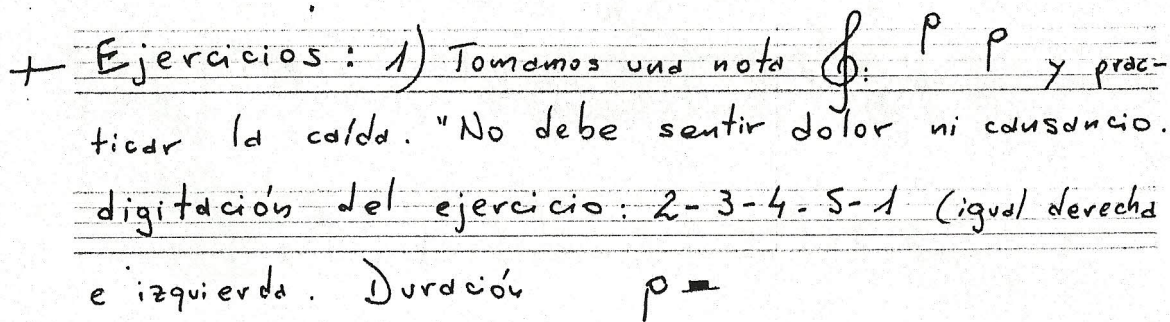 + Ejercicios: 1) Tomamos una nota 𝄞: y prac-
ticar la caída. "No debe sentir dolor ni causancio.
digitación del ejercicio: 2-3-4-5-1 (igual derecha
e izquierda. Duración